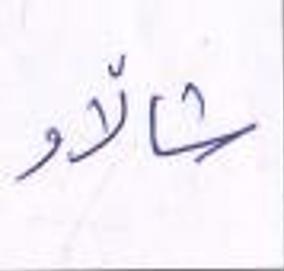 شاڵاو